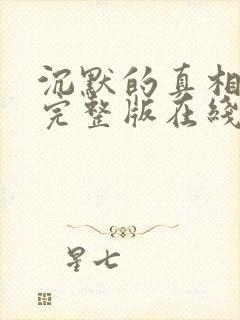 沉默的真相
完整版在线
星七